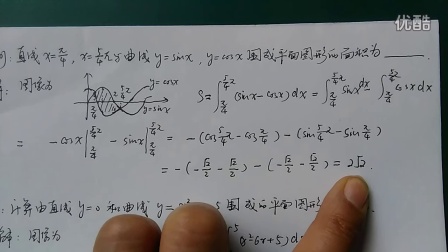 问: 直线 x=π/4, x=5/4π与曲线 y=sinx, y=cosx 围成平面图形的面积为____.
解: 图像为 y=cosx y=sinx S=∫_{π/4}^{5/4π}(sinx-cosx)dx=∫_{π/4}^{5/4π}sinxdx-∫_{π/4}^{5/4π}cosxdx
= -cosx|_{π/4}^{5/4π} - sinx|_{π/4}^{5/4π} = -(cos5/4π-cosπ/4)-(sin5/4π-sinπ/4)
= -(-√2/2-√2/2)-(-√2/2-√2/2)=2√2.
: 计算由直线 y=0 和曲线 y= 5 围成的平面图形
解: 图像为 6x+5)dx
优酷